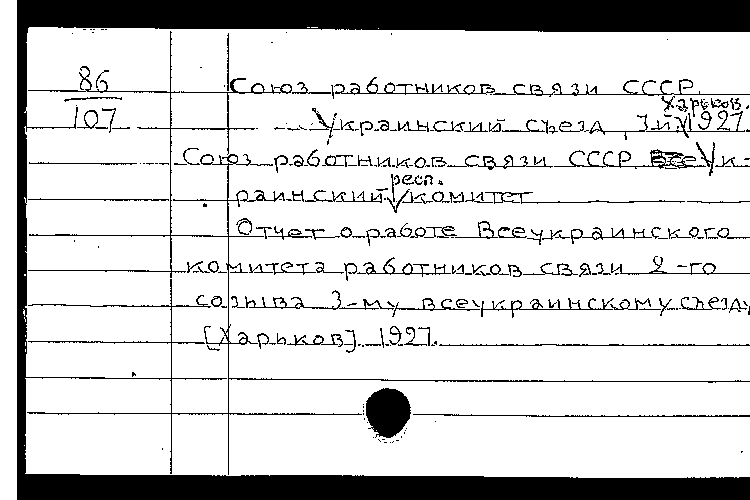 86
107
Союз работников связи СССР.
Харьков.
Украинский съезд, 3й, 1927
Союз работников связи СССР Ук-
респ.
раинский комитет
Отчет о работе Всеукраинского
комитета работников связи 2-го
созыва 3-му всеукраинскому съезду
[Харьков] 1927.